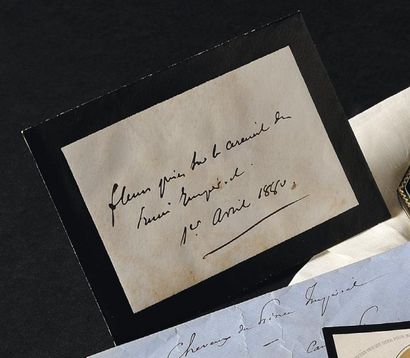 fleurs prises sur le cercueil du
Prince Impérial.
1er Avril 1880.
Cheveux du Prince Impérial